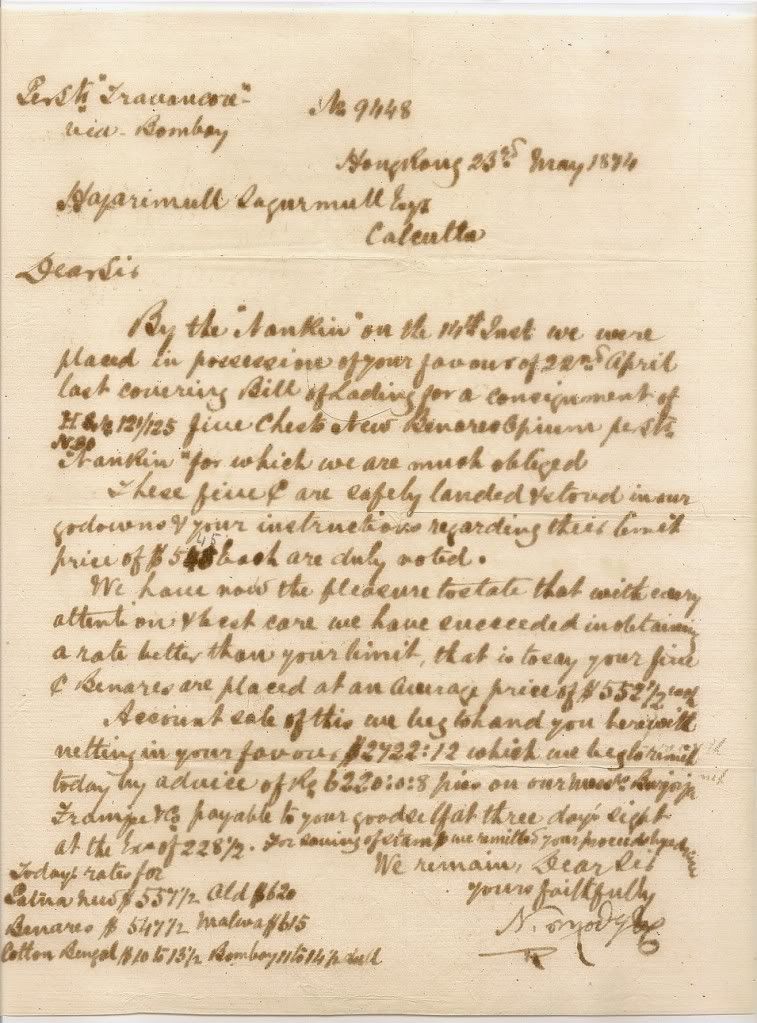 Per Str "Travancore"
via Bombay
No 9448
HongKong 23rd May 1874
Hajarimull Sagurmull Esqr
Calcutta
Dear Sir
By the "Nankin" on the 14th Inst we were
placed in possession of your favour of 22nd April
last covering Bill of Lading for a consignment of
121/125 five Chests New Benares Opium per Str
"Nankin" for which we are much obliged
These five C are safely landed & stored in our
godowns & your instructions regarding their limit
price of $ 545 each are duly noted.
We have now the pleasure to state that with every
attention & best care we have succeeded in obtaining
a rate better than your limit, that is to say your five
C Benares are placed at an average price of $ 552 1/2 each
Account sale of this we beg to hand you herewith
netting in your favour $2722:12 which we beg to remit
today by advice of Rs 6220:0:8 pies on our Messrs Burjorji
Framji & Co payable to your goodself at three day's sight
at the Exe of 228 1/2. For saving of stamp we remitted your proceeds
We remain, Dear Sir
yours faithfully
N. Mody & Co
Today's rates for
Patna New $ 557 1/2 Old $ 620
Benares $ 547 1/2 Malwa $ 615
Cotton Bengal $ 10 to 13 1/2 Bombay 11 to 14 1/2